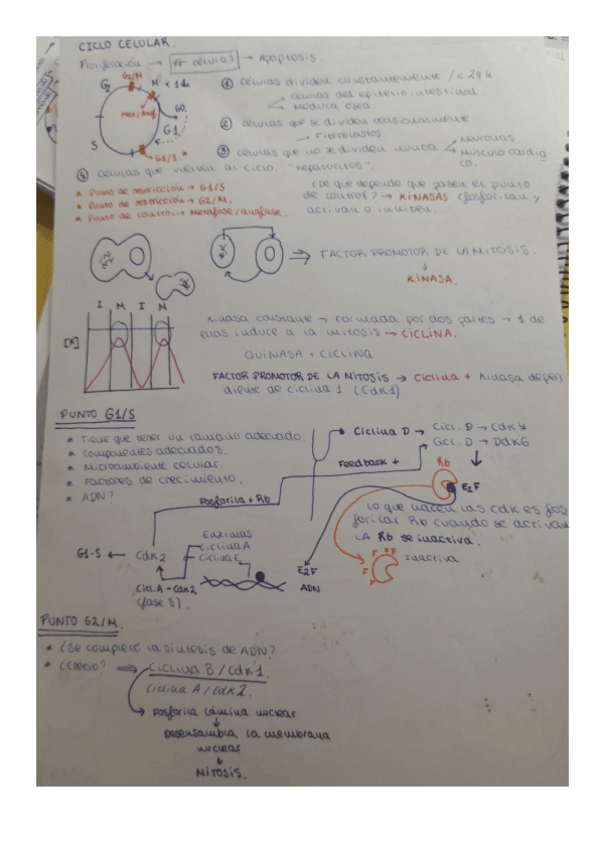 CICLO CELULAR.
Proliferación → nº células → Apoptosis.
G2/M
G2
M < 1 h
Met/Anaf
G0
G1
S
G1/S *
① células dividen constantemente / < 24 h
células del epitelio intestinal
medula ósea.
② células que se dividen ocasionalmente
Fibroblastos.
③ células que no se dividen nunca
neuronas
músculo cardia
co.
④ células que vuelven al ciclo. "hepatocitos".
* Punto de restricción → G1/S
* Punto de restricción → G2/M.
* Punto de control → Metafase/anafase.
¿De que depende que pasen el punto
de control? → KINASAS (fosforilan y
activan o inhiben.
FACTOR PROMOTOR DE LA MITOSIS.
KINASA.
I M I M
[X]
Kinasa constante → Formada por dos partes → 1 de
ellas induce a la mitosis → CICLINA.
QUINASA + CICLINA
FACTOR PROMOTOR DE LA MITOSIS → Ciclina + Kinasa depen
diente de ciclina 1 (Cdk1)
PUNTO G1/S
* Tiene que tener un tamaño adecuado.
* Componentes adecuados.
* Microambiente celular.
* Factores de crecimiento.
* ADN?
Ciclina D → Cicl. D → Cdk4
Cicl. D → Cdk6
Feedback +
Fosforila + Rb
Rb
E2F
Lo que hacen las cdk es fos
forilar Rb cuando se activan
LA Rb se inactiva.
= Inactiva
G1-S ← Cdk2
Enzimas
Ciclina A
Ciclina E
Cicl. A - Cdk2
(fase S).
E2F
ADN
PUNTO G2/M.
* ¿Se completó la síntesis de ADN?
* ¿Creció? ⇒ Ciclina B / Cdk1.
Ciclina A / Cdk2.
Fosforila lámina nuclear
Desensambla la membrana
nuclear
MITOSIS.